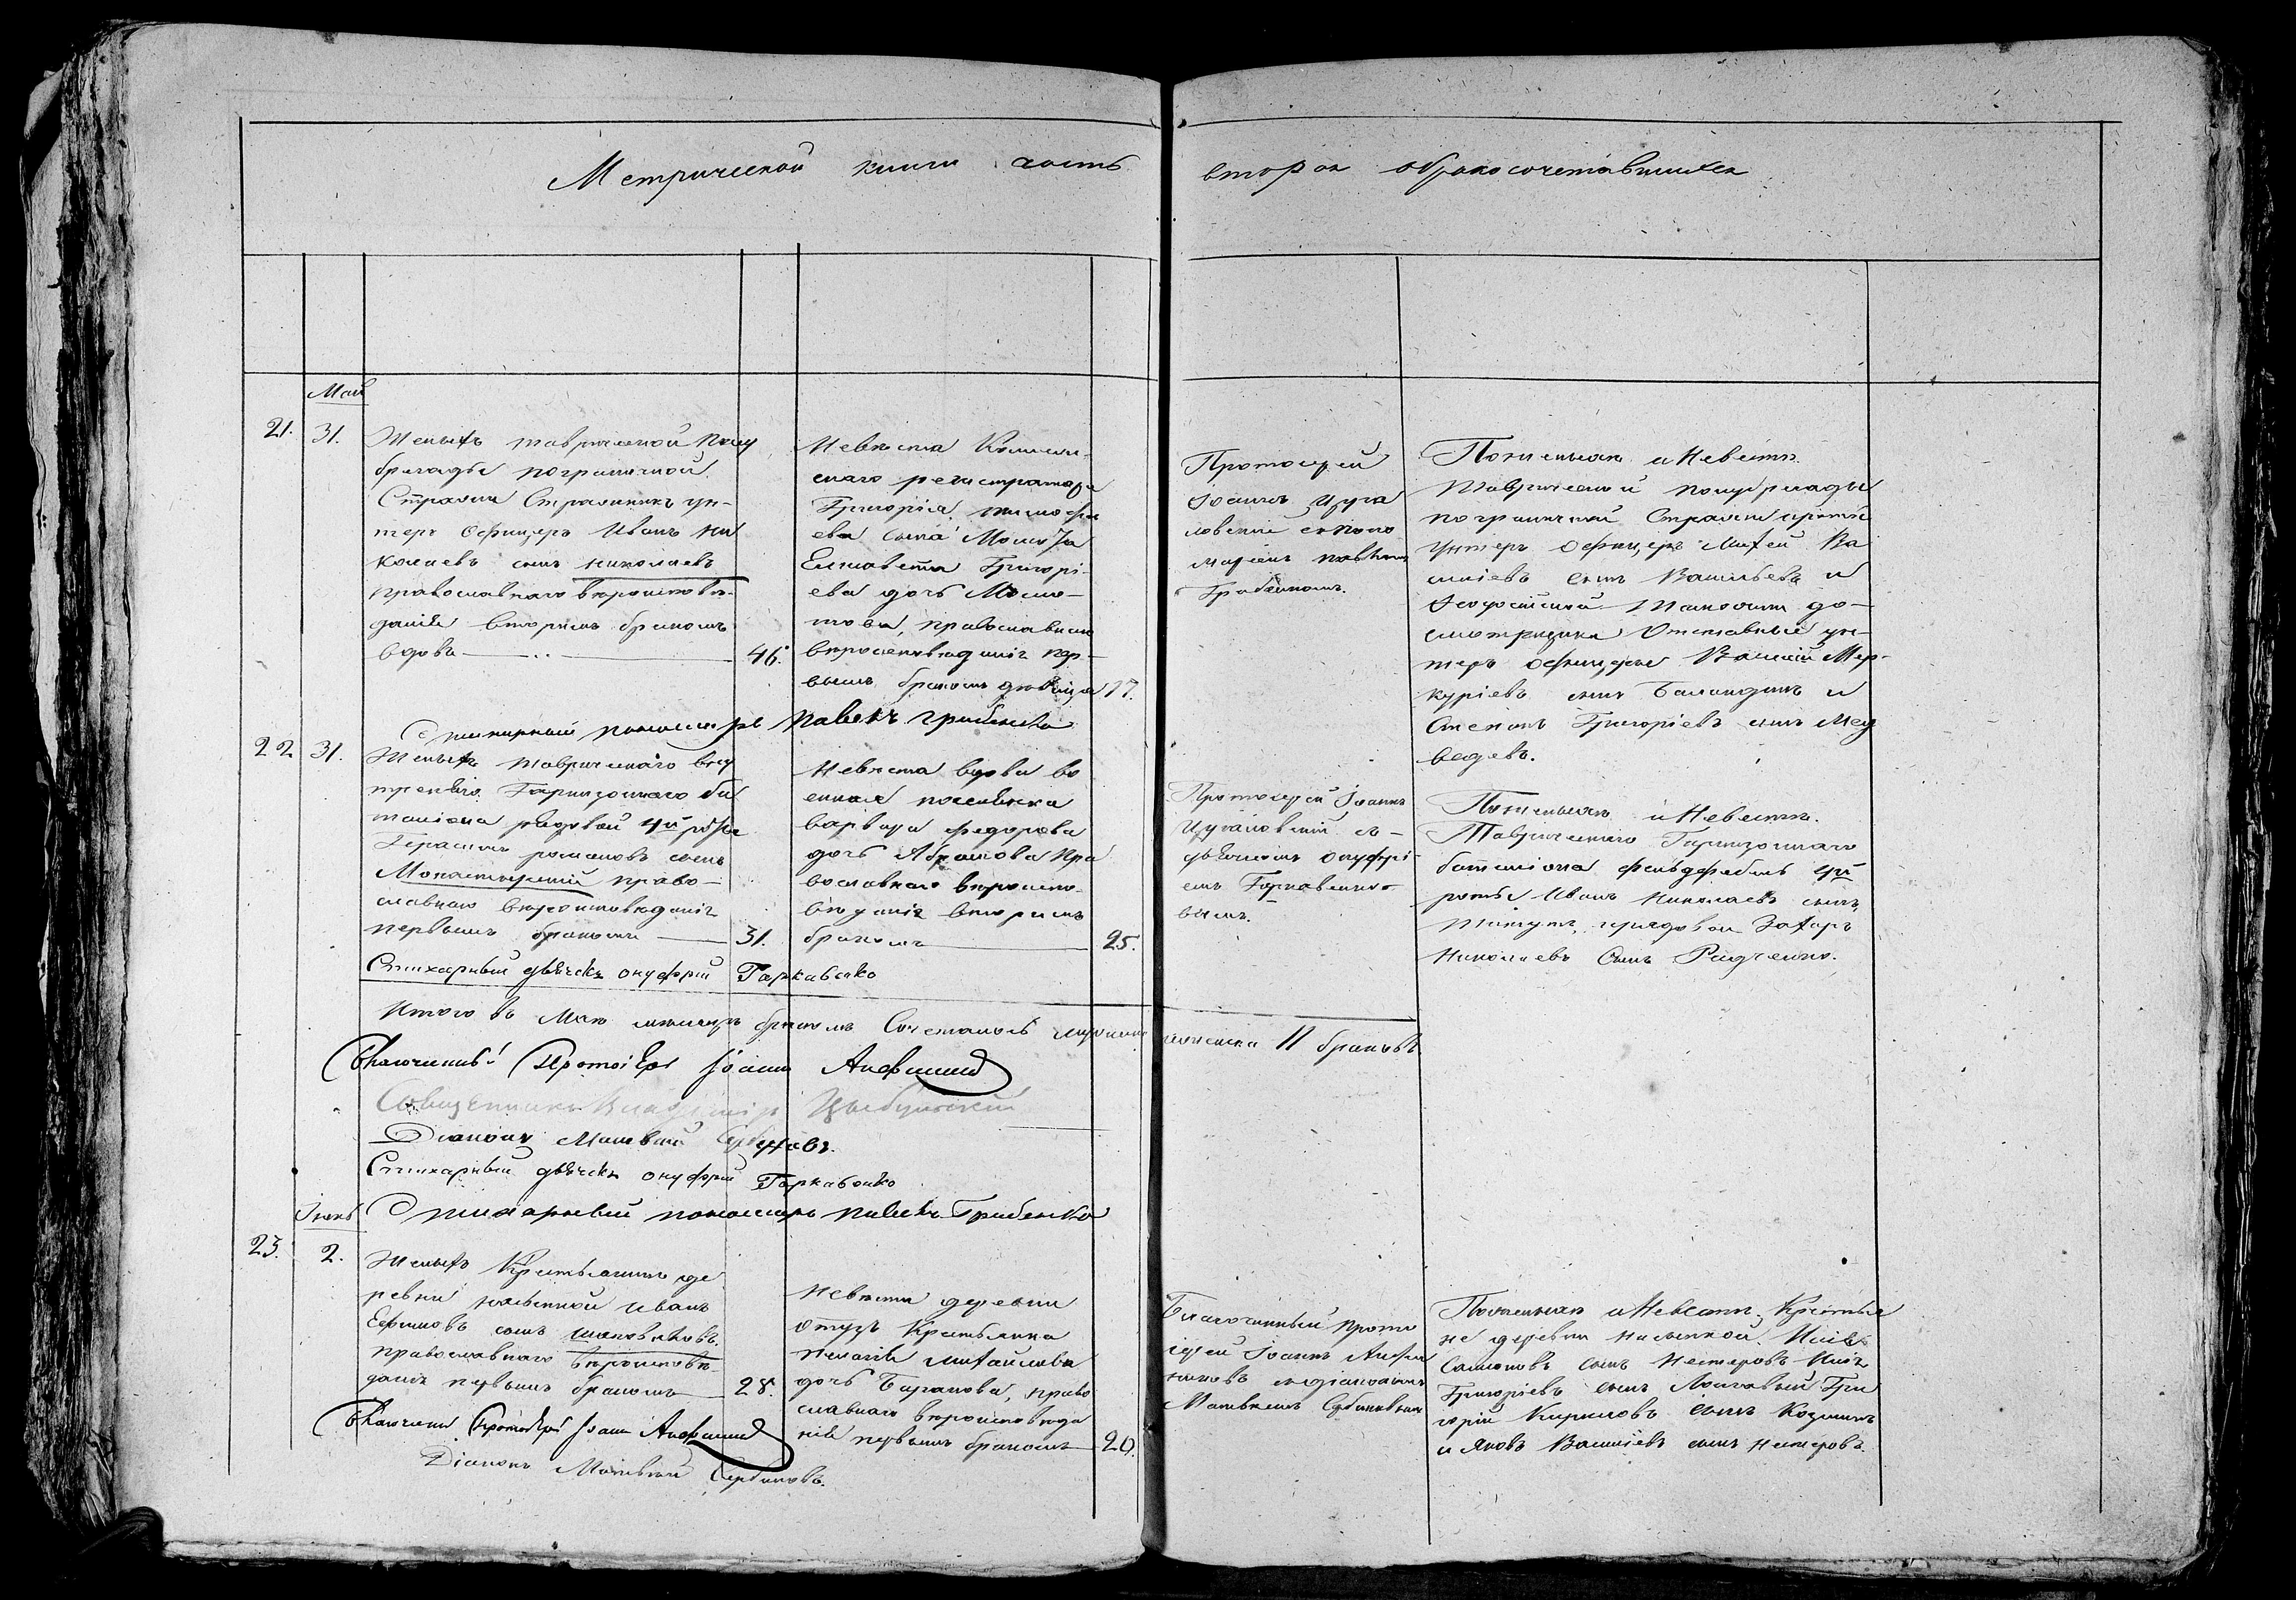 Метрической книги часть вторая о бракосочетавшихся
Май
21. 31.
Женихъ таврической полу
бригады пограничной
Стражи Стражникъ ун-
теръ Офицеръ Иванъ Ни
колаевъ сынъ Николаевъ
православнаго вероисповѣ-
данія вторымъ бракомъ
вдовъ 46.
Невѣста Коллеж-
скаго регистратора
Григорія Тимофе
ева сына
Елисавета Григорі-
ева дочь
православнаго
вероисповѣданія пер-
вымъ бракомъ дѣвица 17.
Протоіерей
Іоаннъ
съ Поно
маремъ Павломъ
Грабенкомъ.
Поженихѣ и Невѣстѣ
Таврической полубригады
пограничной Стражи
Унтеръ Офицеръ Михей Ва
силіевъ сынъ Васильевъ и
Феодосійской Таможни до-
смотрщики Отставные ун-
теръ офицеры Василій Мер-
куріевъ сынъ Баландинъ и
Степанъ Григоріевъ сынъ Мед
ведевъ.
Стихарный пономарь Павелъ Грабенко
22 31.
Женихъ Таврическаго вну
тренняго Гарнизоннаго ба
таліона рядовой 4й роты
Герасимъ Романовъ сынъ
Монастырскій право-
славнаго вероисповѣданія
первымъ бракомъ 31.
Невѣста вдова во
енная поселянка
Варвара Федорова
дочь Абрамова Пра
вославнаго вероиспо-
вѣданія вторымъ
бракомъ 25.
Протоіерей Іоаннъ
съ
дьячкомъ Онуфрі-
емъ Горкавенко-
вымъ.
Поженихѣ и Невѣстѣ.
Таврическаго Гарнизоннаго
баталіона фельдфебель 4й
роты Иванъ Николаевъ сынъ
рядовой Захаръ
Николаевъ Сынъ Радченко.
Стихарный дьячекъ Онуфрій Горкавенко
Итого въ Маѣ месяцѣ бракомъ Сочеталось 11 браковъ.
Благочинный Протоіерей Іоаннъ
Священникъ Владиміръ
Діаконъ Матвѣй Сербиновъ.
Стихарный дьячекъ Онуфрій Горкавенко
Стихарный пономарь Павелъ Грабенко
Іюнь
23. 2.
Женихъ Крестьянинъ де
ревни Насыпкой Иванъ
Ефимовъ сынъ
православнаго вероисповѣ
данія первымъ бракомъ 28.
Невѣста деревни
Отузъ Крестьянка
Пелагія Михайлова
дочь Баранова, право
славнаго вероисповѣда
нія первымъ бракомъ 20.
Благочинный прото
іерей Іоаннъ
съ діакономъ
Матвѣемъ Сербиновымъ
Поженихѣ и Невѣстѣ Крестья
не деревни Насыпкой
сынъ Нестеровъ
Григоріевъ сынъ Гри
горій Кириловъ сынъ Козминъ
и Яковъ Василіевъ сынъ Нестеровъ.
Благочинный Протоіерей Іоаннъ
Діаконъ Матвѣй Сербиновъ.